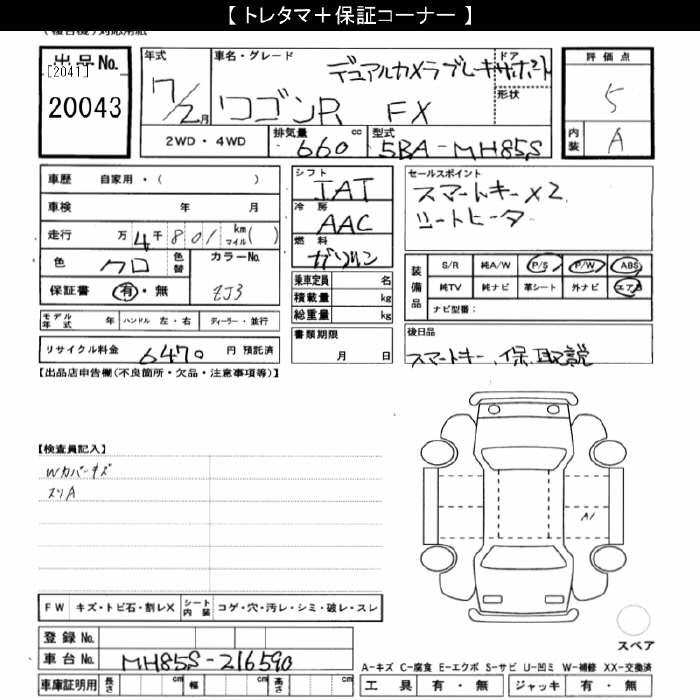 【 トレタマ＋保証コーナー 】
出品No. 年式 車名・グレード ドア 形状 評価点
[2041] デュアルカメラブレーキサポート
20043 7/2月 ワゴンR FX 5
2WD・4WD 排気量 660 cc 型式 5BA-MH85S 内装 A
車歴 自家用・( ) シフト IAT セールスポイント
車検 年 月 冷房 AAC スマートキー×2
走行 万 4千801 km マイル( ) 燃料 ガソリン シートヒーター
色 クロ 色替 カラーNo. ZJ3
保証書 有・無 乗車定員 名
積載量 kg
総重量 kg
装備品 S/R 純A/W P/S P/W ABS
純TV 純ナビ 革シート 外ナビ エアB
ナビ型番：
モデル年式 年 ハンドル 左・右 ディーラー・並行
書類期限 年 月 日
後日品
リサイクル料金 6470 円 預託済
スマートキー、保、取説
【出品店申告欄(不良箇所・欠品・注意事項等)】
【検査員記入】
Wカバーキズ
スリA
A1
FW キズ・トビ石・割レX シート内装 コゲ・穴・汚レ・シミ・破レ・スレ
スペア
登録No.
車台No. MH85S-216590
A-キズ C-腐食 E-エクボ S-サビ U-凹ミ W-補修 XX-交換済
車庫証明用 長さ cm 幅 cm 高さ cm 工具 有・無 ジャッキ 有・無